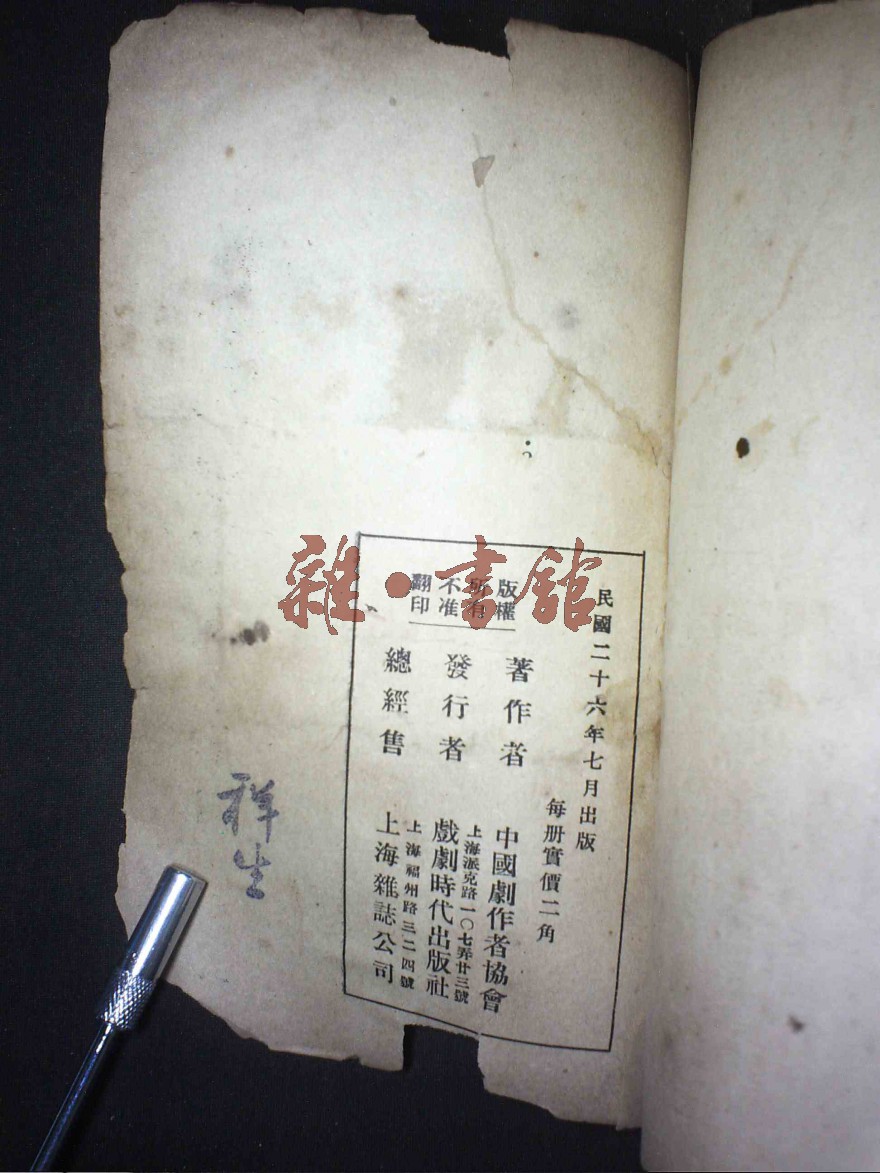 民國二十六年七月出版
每册實價二角
版權
所有
不准
翻印
著作者 中國劇作者協會
上海派克路一〇七弄廿三號
發行者 戲劇時代出版社
上海福州路三二四號
總經售 上海雜誌公司
祥生
雜·書館